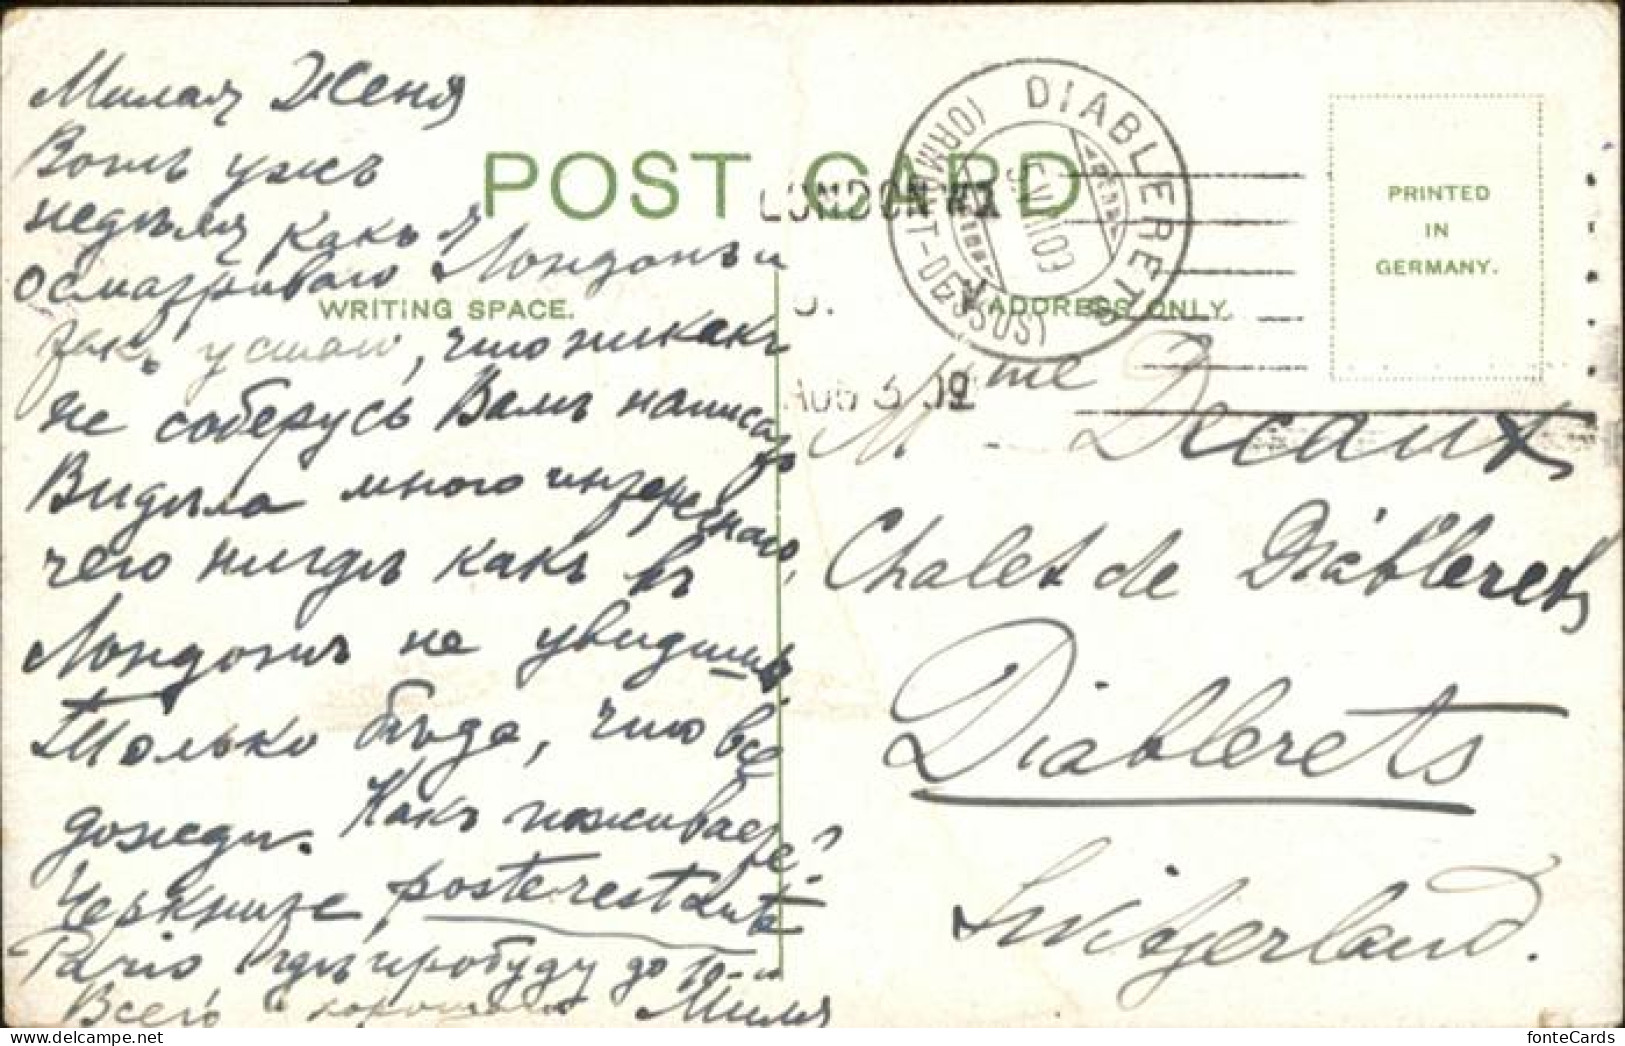 Милая Женя
Вотъ ужъ
недѣля какъ я
осматриваю Лондонъ и
такъ устаю, что никакъ
не соберусь Вамъ написать
Видѣла много интереснаго,
чего нигдѣ какъ въ
Лондонѣ не увидишь
Только бѣда, что все
дожди. Какъ поживаете?
Черкните, poste restante
Paris гдѣ пробуду до 10-и
Всего хорошаго Миля
POST CARD
WRITING SPACE.
ADDRESS ONLY.
LONDON W.
AUG 3 09
DIABLERETS
(ORMONT-DESSUS)
PRINTED
IN
GERMANY.
Mme Decaux
Chalet de Diablerets
Diablerets
Switzerland.
fonteCards